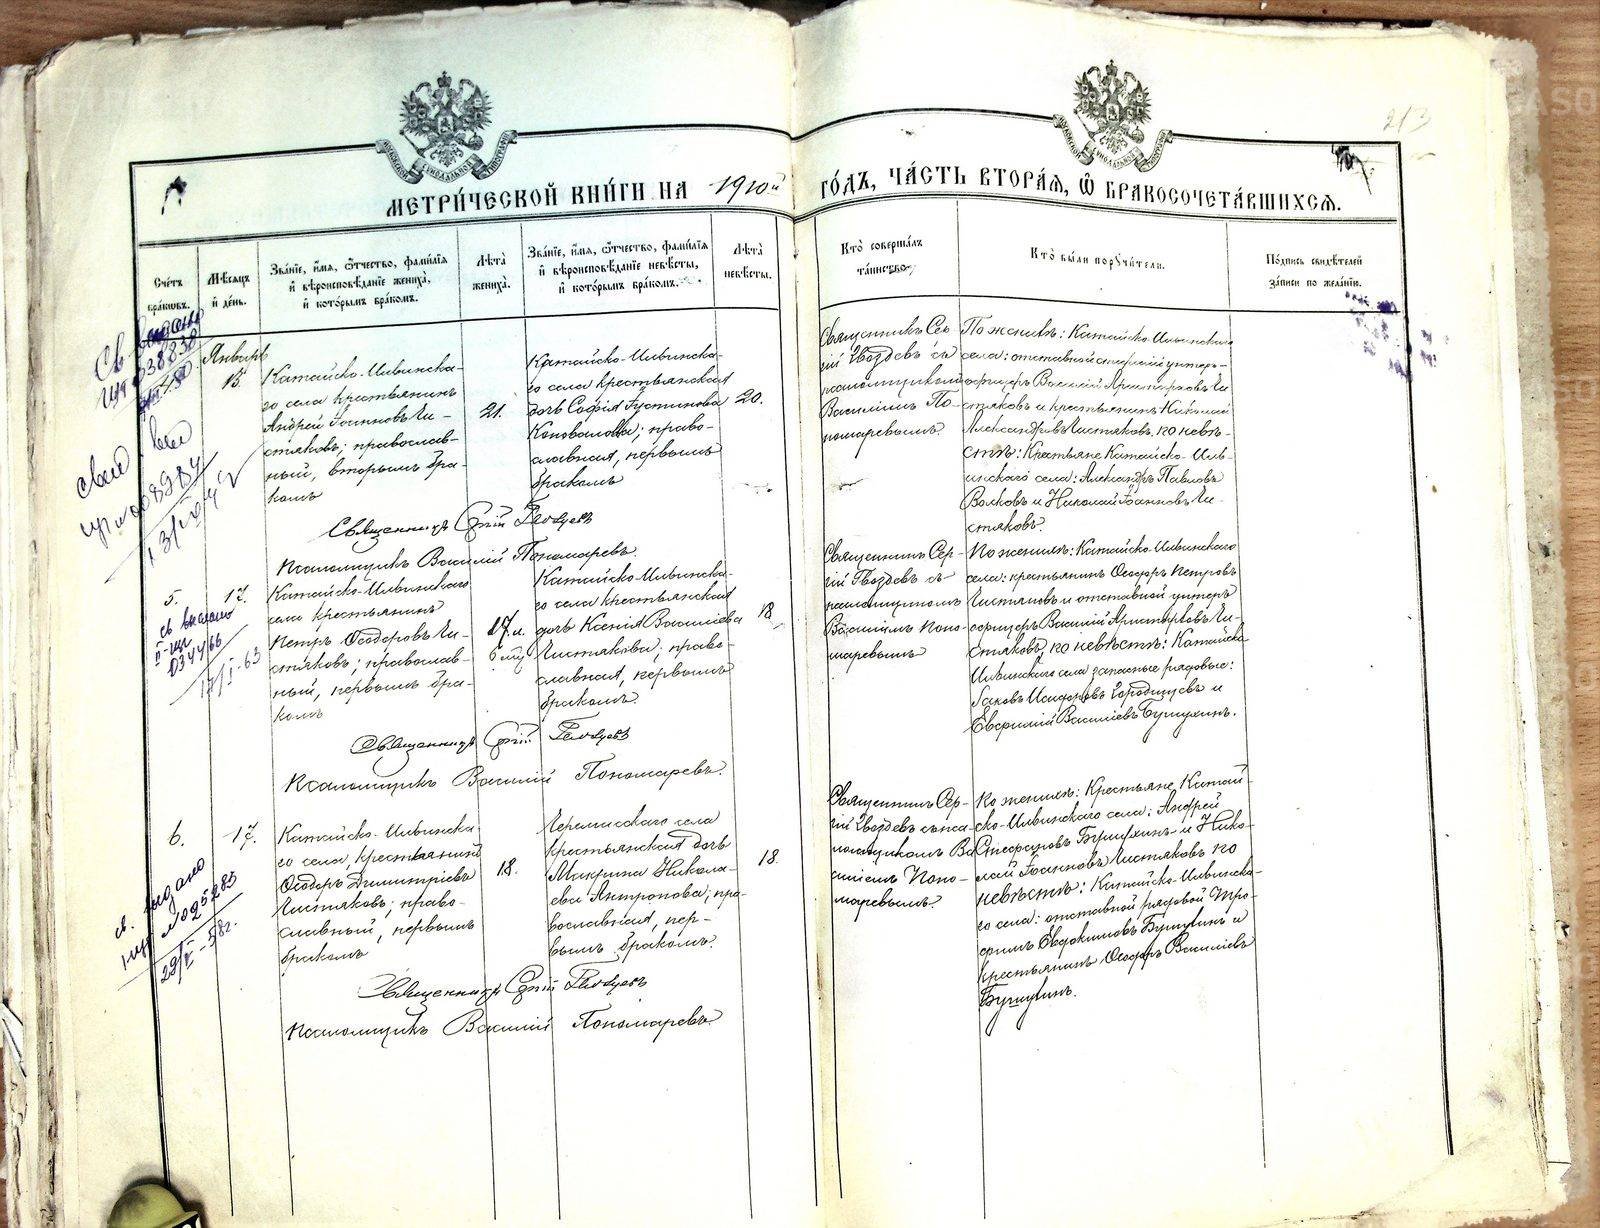 213
МЕТРИ́ЧЕСКОЙ КНИ́ГИ НА 1910й ГО́ДЪ, ЧА́СТЬ ВТОРА́Я, Ѡ҆ БРАКОСОЧЕТА́ВШИХСЯ.
Сче́тъ
бра́ковъ.
Мѣ́сяцъ
и҆ де́нь.
Зва́нїе, и҆́мя, ѻ҆́тчество, фами́лїя
и҆ вѣроисповѣ́данїе жениха̀,
и҆ кото́рымъ бра́комъ.
Лѣ́та
жениха̀.
Зва́нїе, и҆́мя, ѻ҆́тчество, фами́лїя
и҆ вѣроисповѣ́данїе невѣ́сты,
и҆ кото́рымъ бра́комъ.
Лѣ́та
невѣ́сты.
Кто̀ соверша́лъ
та́инство.
Кто̀ бы́ли поручи́тели.
По́дпись свидѣ́телей
за́писи по жела́нїю.
Январь
15.
Катайско-Ильинска-
го села крестьянинъ
Андрей Іоанновъ Чи-
стяковъ; православ-
ный, вторымъ бра-
комъ
21.
Катайско-Ильинска-
го села крестьянская
дочь Софія Іустинова
Коновалова; право-
славная, первымъ
бракомъ
20.
Священникъ Сер-
гій Гвоздевъ съ
псаломщикомъ
Василіемъ По-
номаревымъ.
По женихѣ: Катайско-Ильинскаго
села: отставной старшій унтеръ-
офицеръ Василій Аристарховъ Чи-
стяковъ и крестьянинъ Николай
Александровъ Чистяковъ, по невѣ-
стѣ: Крестьяне Катайско-Иль-
инскаго села: Александръ Павловъ
Волковъ и Николай Іоанновъ Чи-
стяковъ.
Священникъ Сергій Гвоздевъ
Псаломщикъ Василій Пономаревъ.
5.
17.
Катайско-Ильинскаго
села крестьянинъ
Петръ Ѳеодоровъ Чи-
стяковъ; православ-
ный, первымъ бра-
комъ
17 л.
6 мц
Катайско-Ильинска-
го села крестьянская
дочь Ксенія Васильева
Чистякова; право-
славная, первымъ
бракомъ.
18
Священникъ Сер-
гій Гвоздевъ съ
псаломщикомъ
Василіемъ Поно-
маревымъ
По женихѣ: Катайско-Ильинскаго
села: крестьянинъ Ѳеодоръ Петровъ
Чистяковъ и отставной унтеръ
офицеръ Василій Аристарховъ Чи-
стяковъ, по невѣстѣ: Катайско
Ильинскаго села запасные рядовые:
Іаковъ Городищевъ и
Евѳимій Василіевъ Бушухинъ.
Священникъ Сергій Гвоздевъ
Псаломщикъ Василій Пономаревъ.
6.
17.
Катайско-Ильинска-
го села, крестьянинъ
Ѳеодоръ Димитріевъ
Чистяковъ; право-
славный, первымъ
бракомъ
18.
Черемисскаго села
крестьянская дочь
Макрина Никола-
ева Антропова; пра-
вославная, пер-
вымъ бракомъ.
18.
Священникъ Сер-
гій Гвоздевъ съ пса-
ломщикомъ Ва-
силіемъ Поно-
маревымъ.
По женихѣ: Крестьяне Катай-
ско-Ильинскаго села: Андрей
Стефановъ Бушухинъ и Нико-
лай Іоанновъ Чистяковъ по
невѣстѣ: Катайско-Ильинска-
го села: отставной рядовой Тро-
фимъ Евдокимовъ Бушухинъ и
крестьянинъ Ѳеодоръ Василіевъ
Бушухинъ.
Священникъ Сергій Гвоздевъ
Псаломщикъ Василій Пономаревъ.
св выдано
II-ЩЮ
034466
17/I-63
св. выдано
I-ЩЮ №025283
29/V-58г.